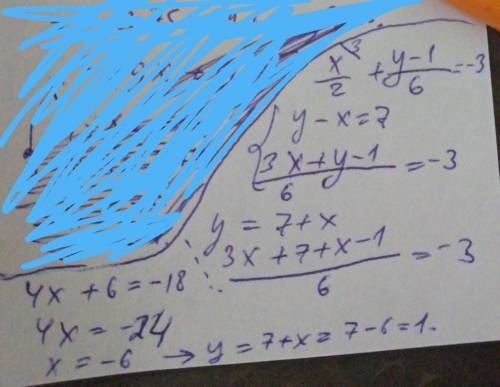 x/2 \3 + (y-1)/6 = -3
y - x = 7
(3x + y - 1)/6 = -3
y = 7 + x
(3x + 7 + x - 1)/6 = -3
4x + 6 = -18
4x = -24
x = -6 → y = 7+x = 7-6 = 1.